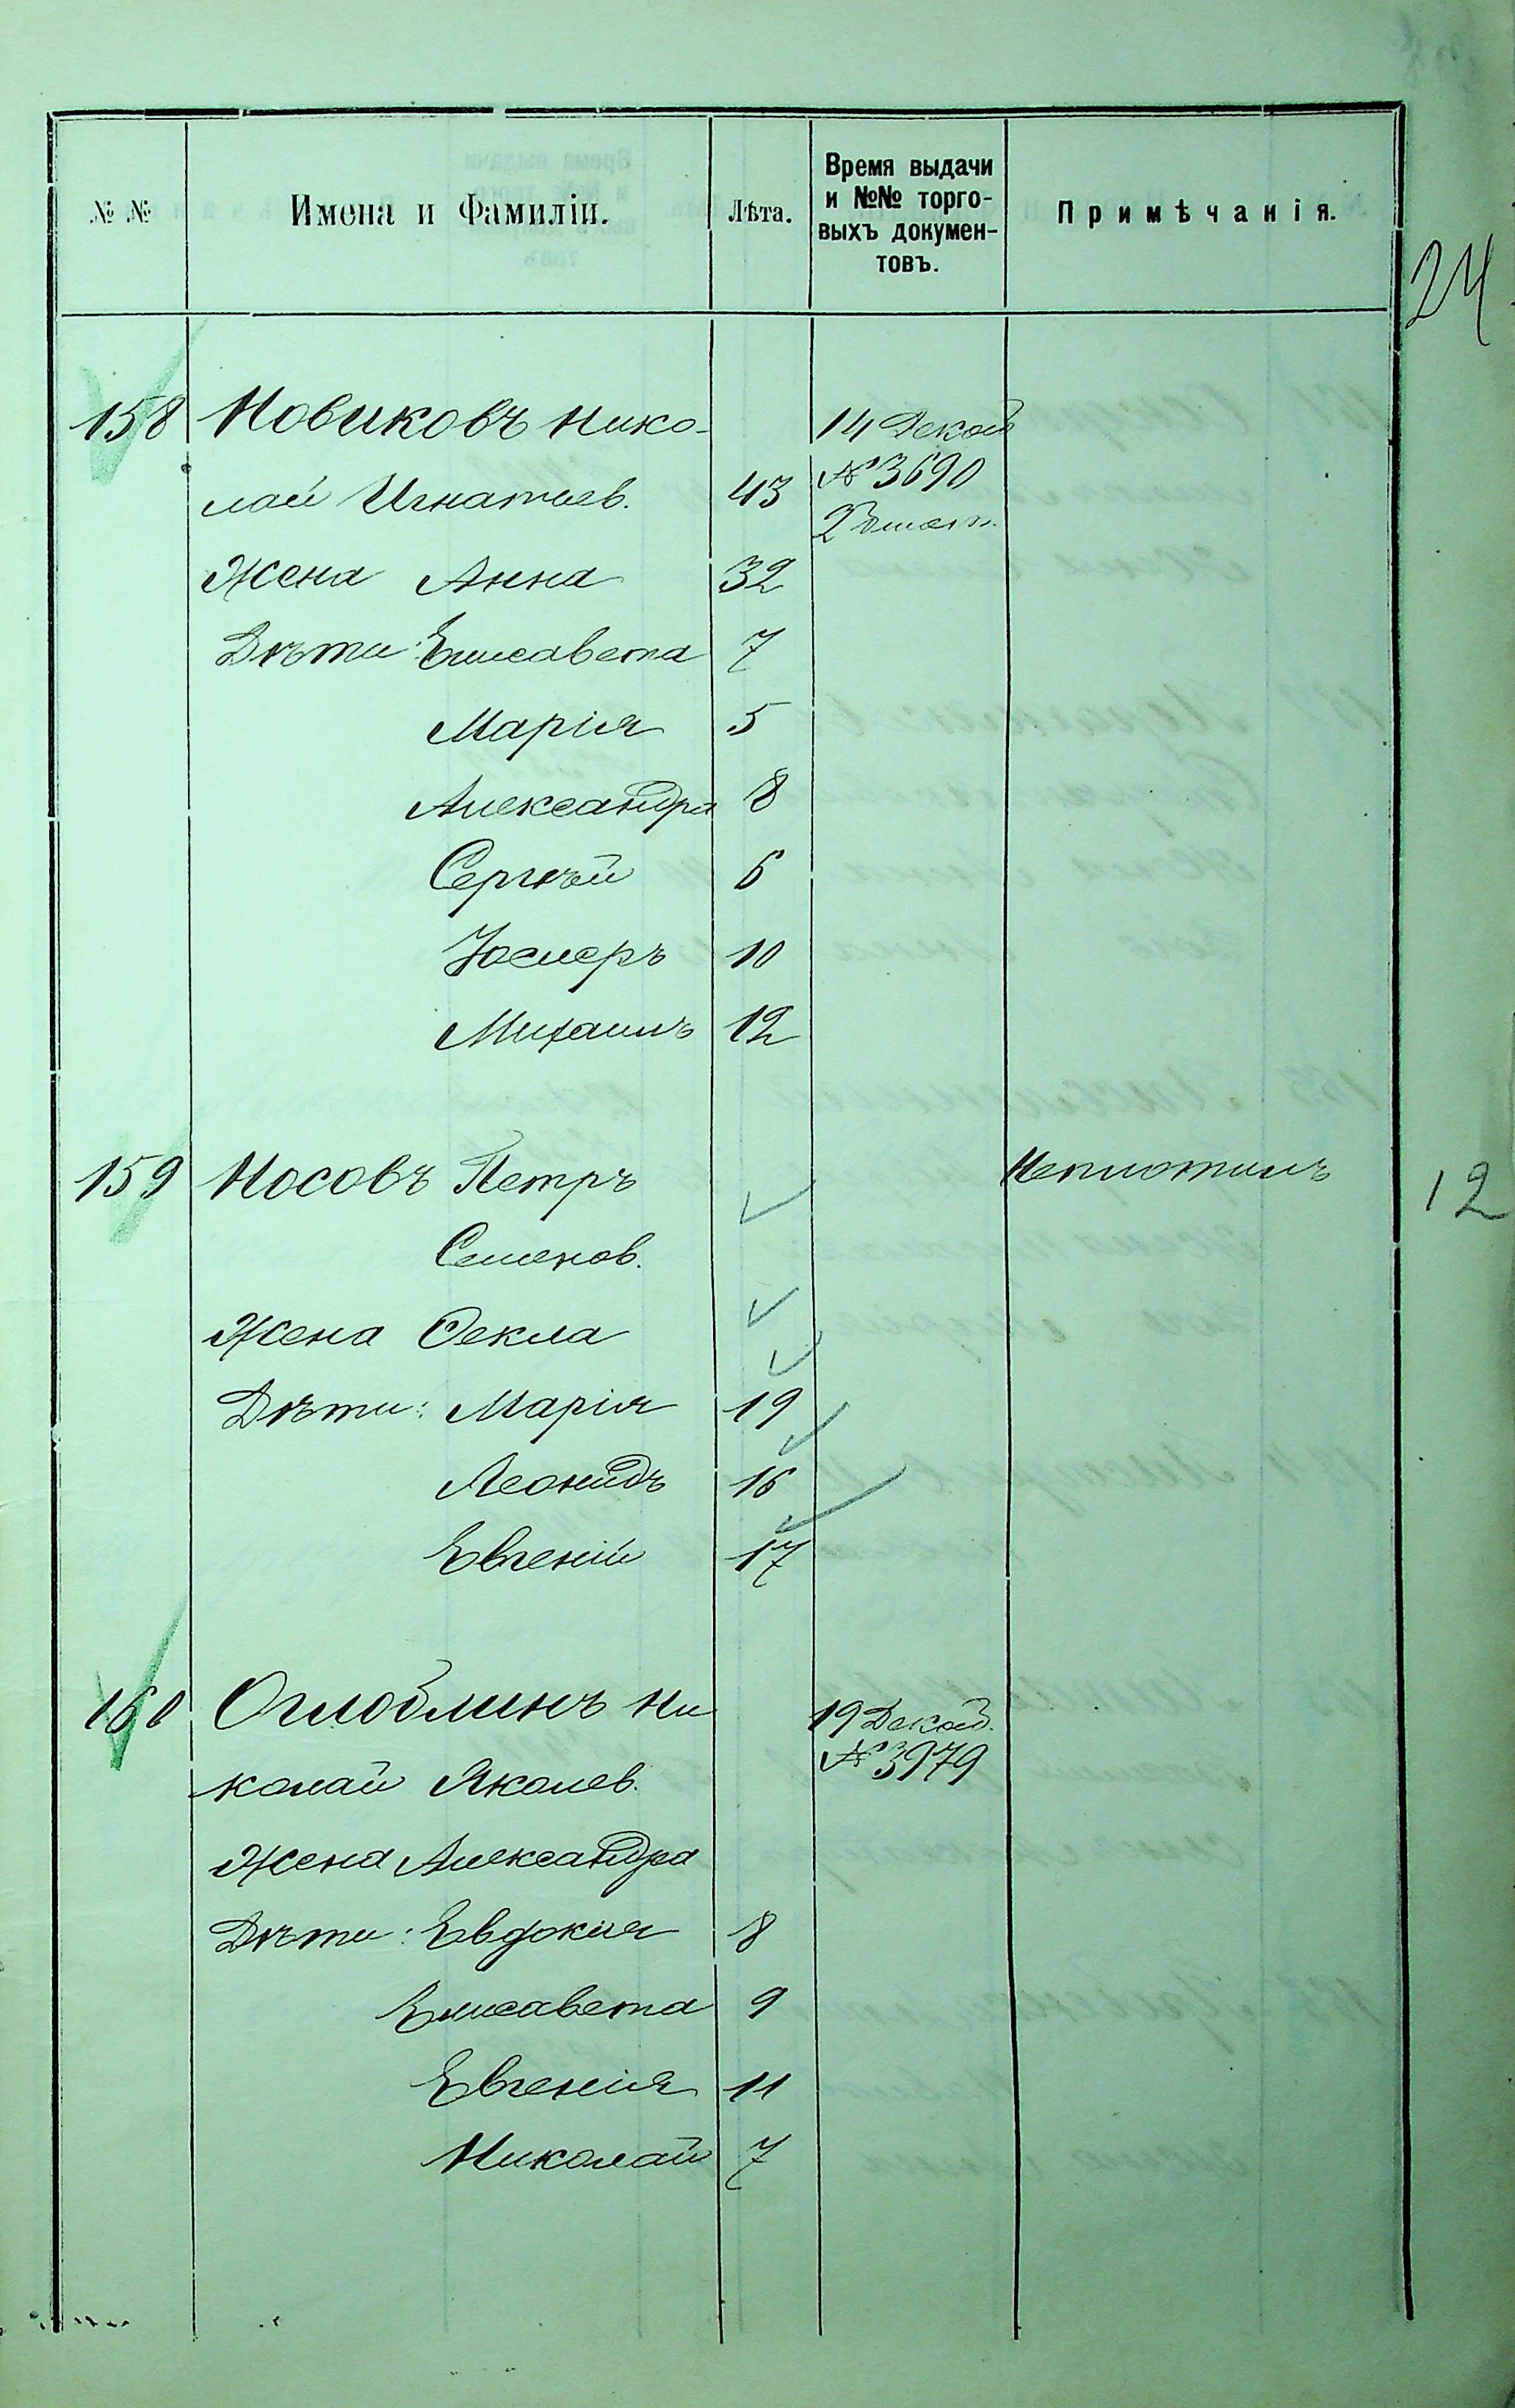 № №
Имена и Фамиліи.
Лѣта.
Время выдачи
и №№ торго-
выхъ докумен-
товъ.
Примѣчанія.
24
158 Новиковъ Нико-
14 Декаб
лай Игнатьев. 43 № 3690
Жена Анна 32
Дѣти: Елисавета 7
Марія 5
Александра 8
Сергѣй 6
10
Михаилъ 12
159 Носовъ Петръ
12
Семенов.
Жена Ѳекла
Дѣти: Марія 19
Леонидъ 16
Евгеній 17
160 Оглоблинъ Ни
19 Декаб.
колай Яколев. № 3979
Жена Александра
Дѣти: Евдокія 8
Елисавета 9
Евгенія 11
Николай 7